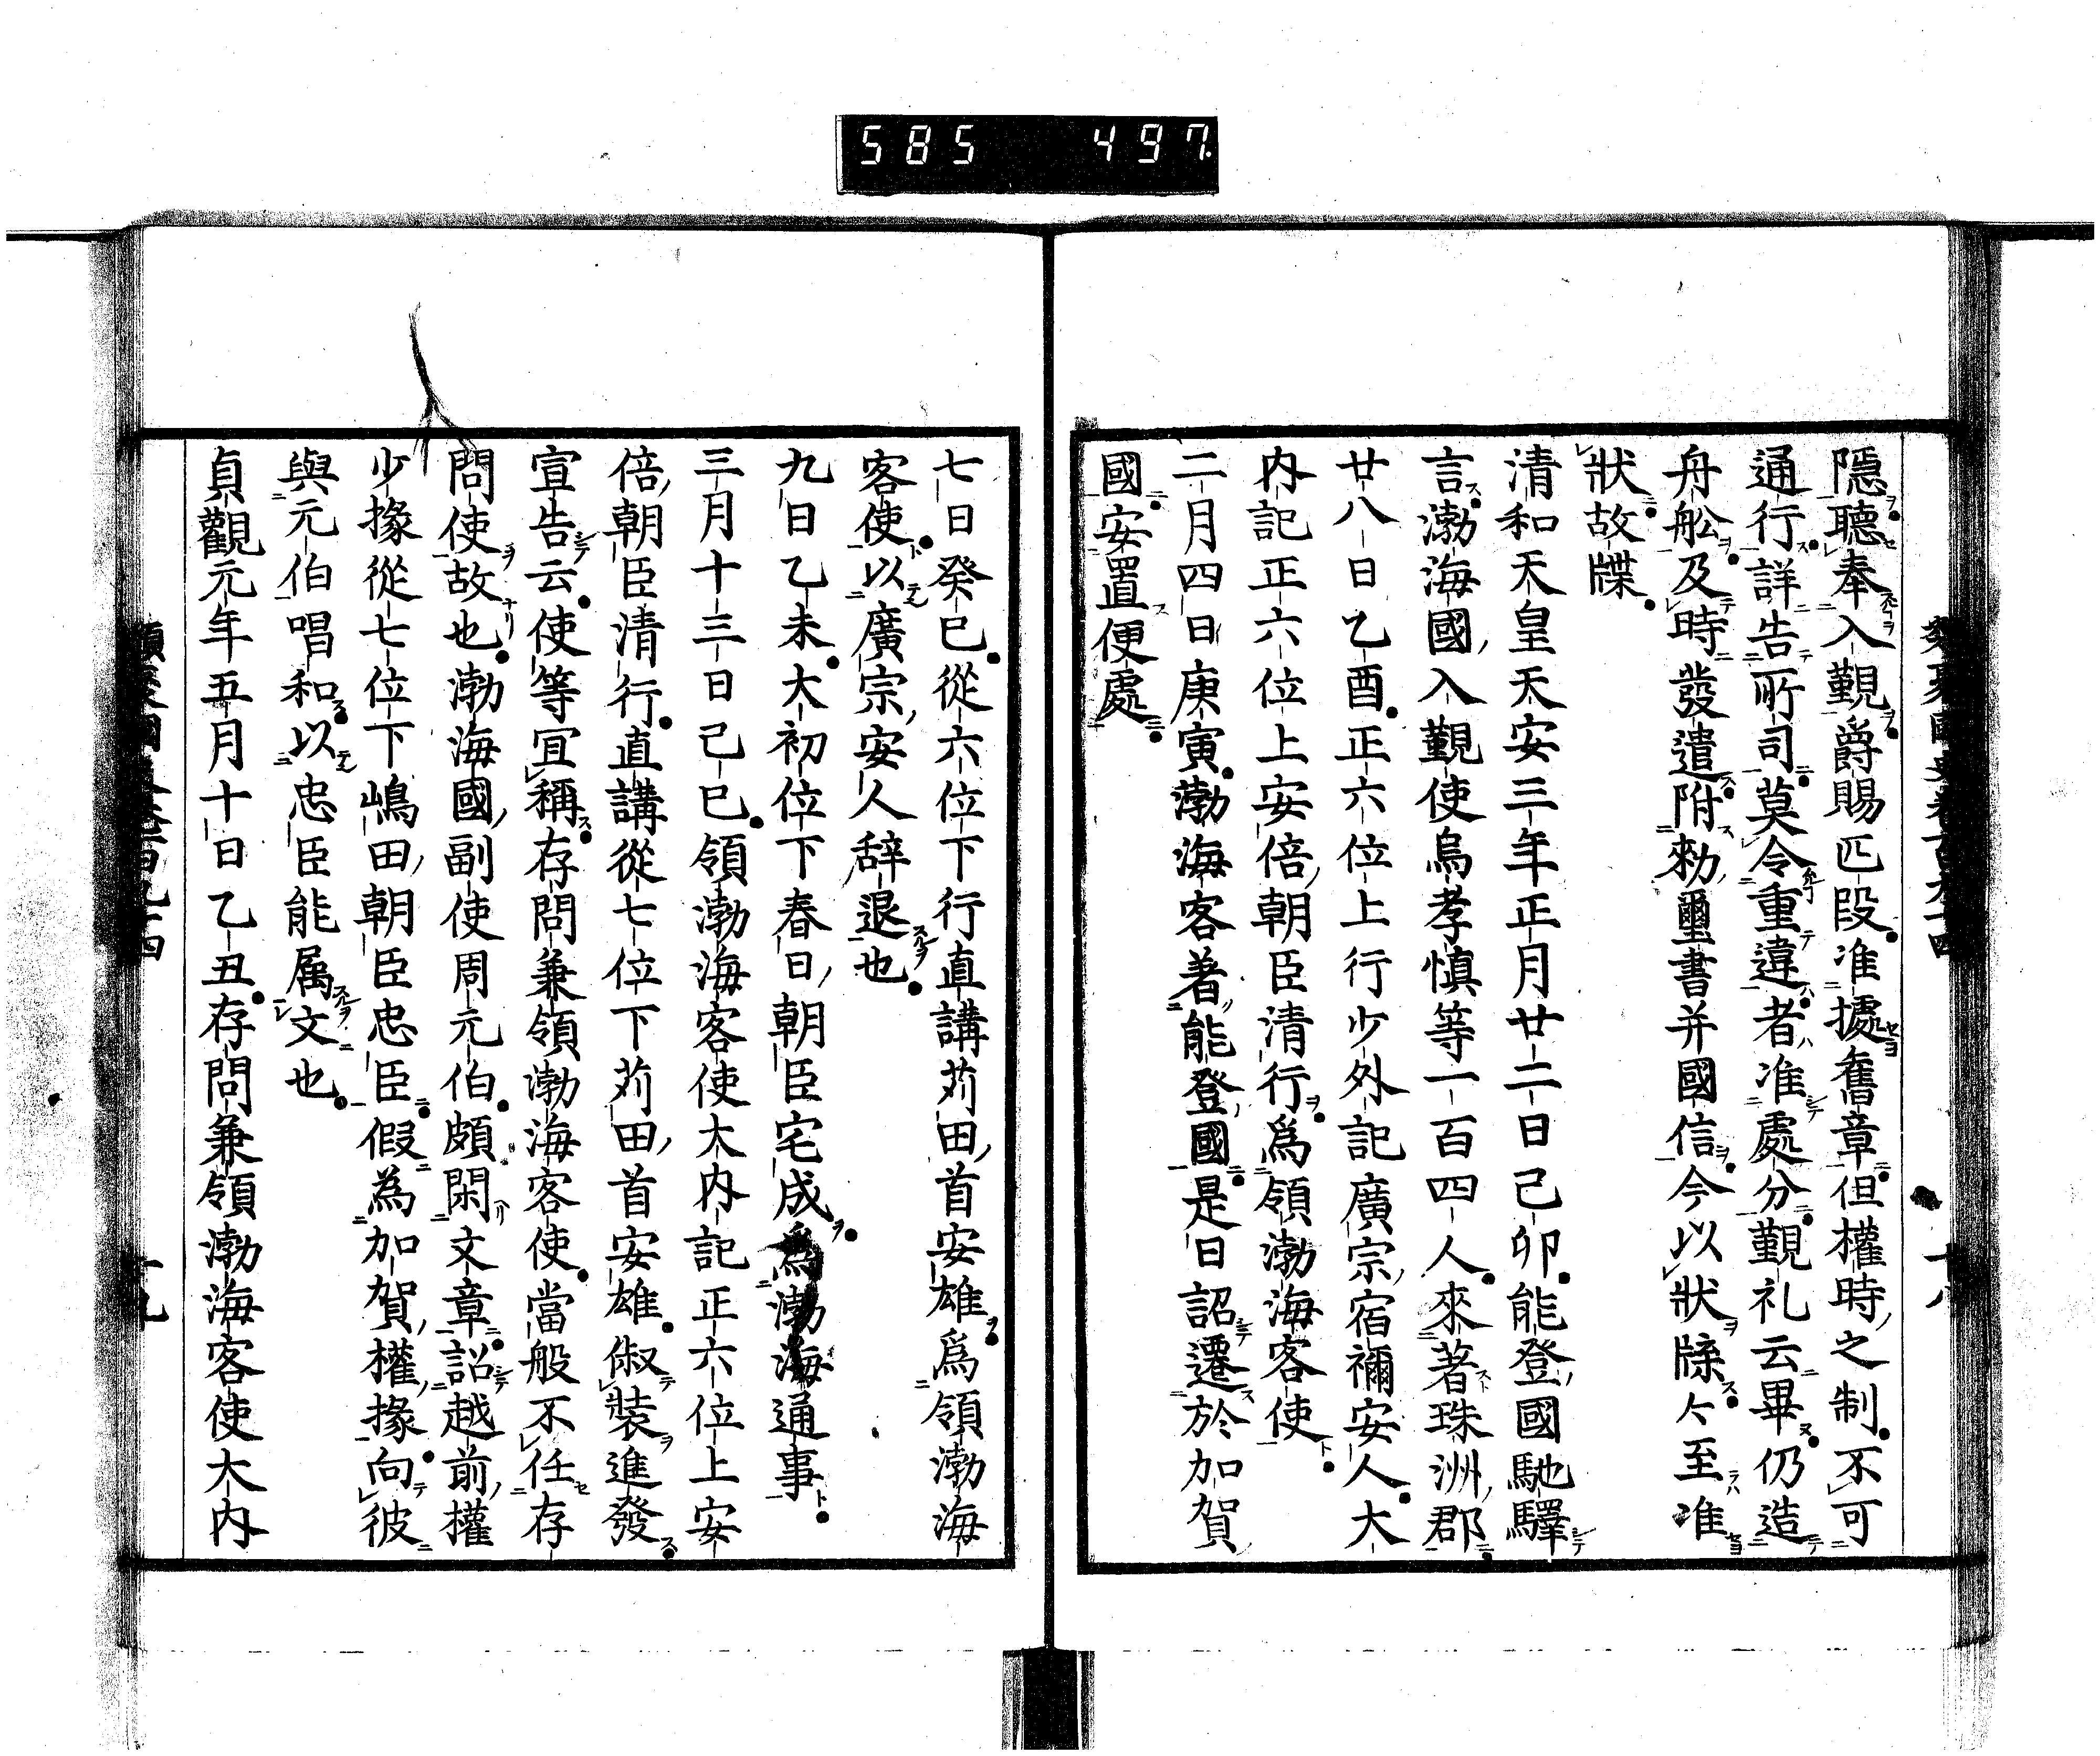 585 497
類聚國史卷百九十四 十八
隱聽奉入覲爵賜匹段准據舊章但權時之制不可
通行詳告所司莫令重違者准處分覲礼云畢仍造
舟舩及時發遣附勑璽書并國信今以狀牒々至准
狀故牒
清和天皇天安三年正月廿二日己卯能登國馳驛
言渤海國入覲使烏孝慎等一百四人來著珠洲郡
廿八日乙酉正六位上行少外記廣宗宿禰安人大
内記正六位上安倍朝臣清行爲領渤海客使
二月四日庚寅渤海客著能登國是日詔遷於加賀
國安置便處
七日癸巳從六位下行直講苅田首安雄爲領渤海
客使以廣宗安人辞退也
九日乙未大初位下春日朝臣宅成爲渤海通事
三月十三日己巳領渤海客使大内記正六位上安
倍朝臣清行直講從七位下苅田首安雄俶裝進發
宣告云使等宜稱存問兼領渤海客使當般不任存
問使故也渤海國副使周元伯頗閑文章詔越前權
少掾從七位下嶋田朝臣忠臣假為加賀權掾向彼
與元伯唱和以忠臣能属文也
貞觀元年五月十日乙丑存問兼領渤海客使大内
類聚國史卷百九十四 十九